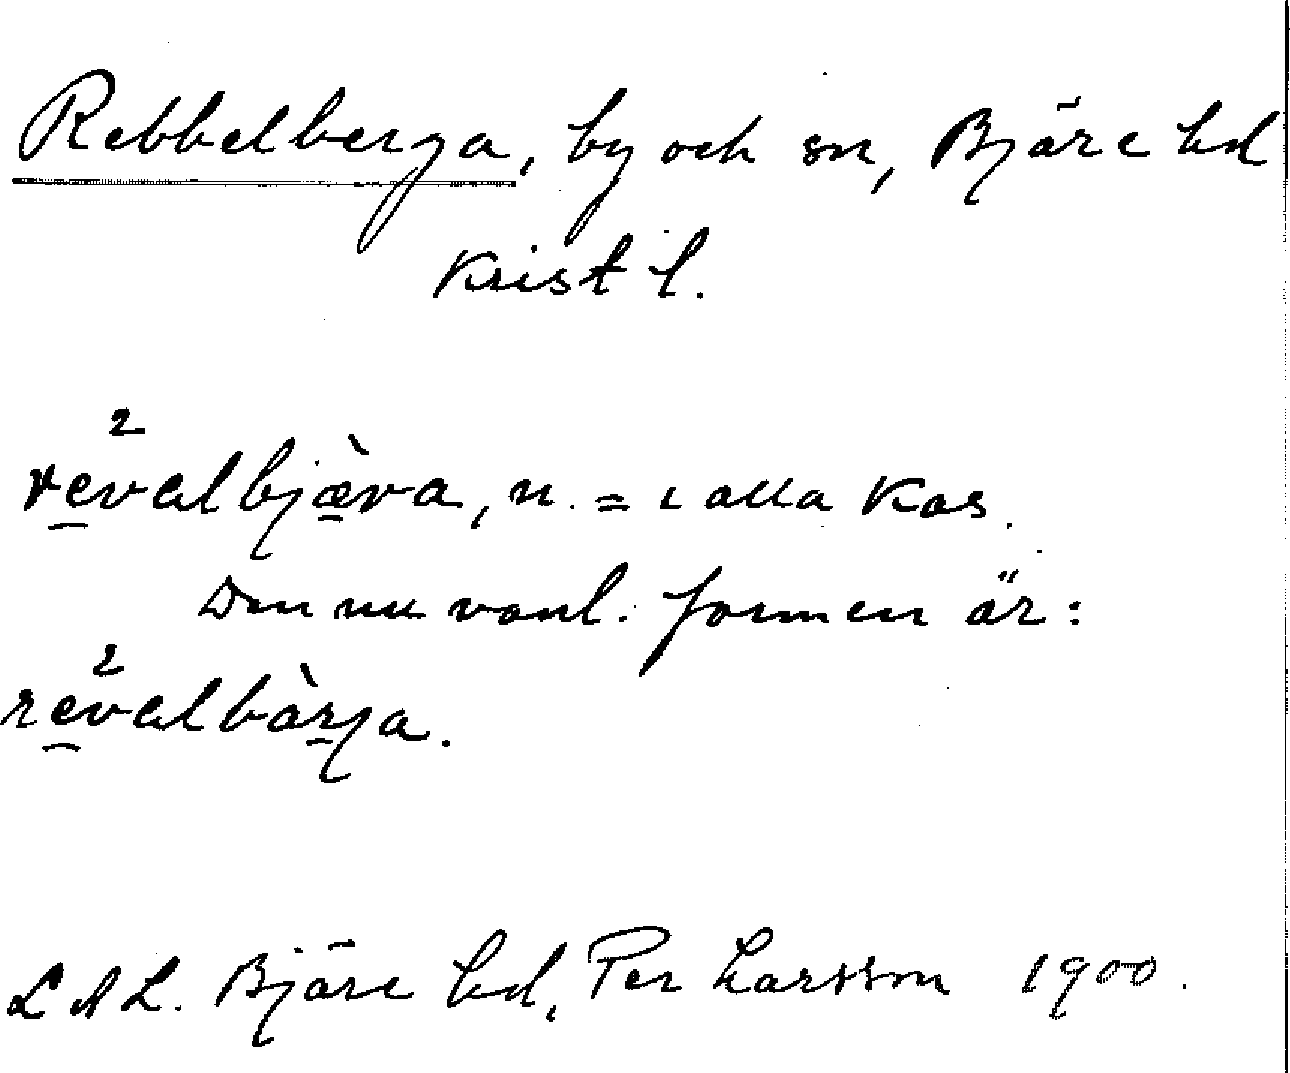 Rebbelberga, by och sn, Bjäre hd
Krist l.
2
revalbjæ̀va, n. = i alla kas.
Den nu vanl. formen är:
2
revalbàrja.
LAL. Bjäre hd, Per Larsson 1900.